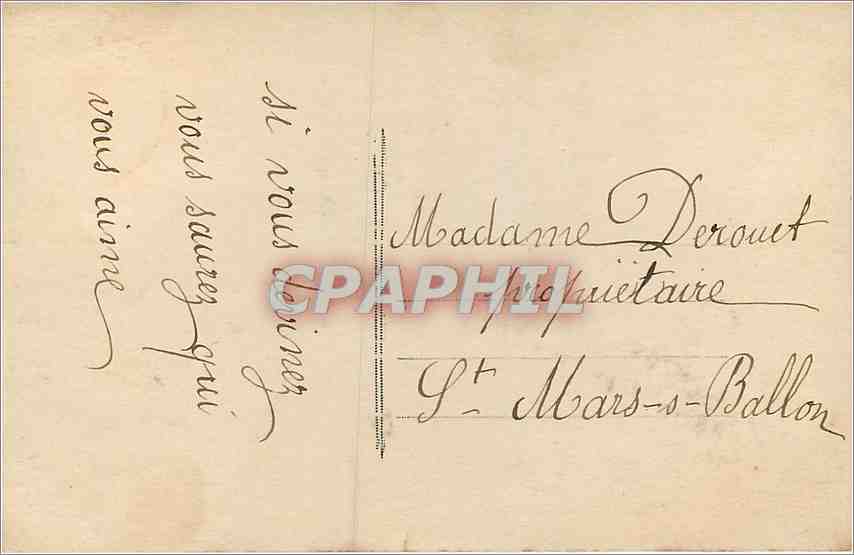 si vous devinez
vous saurez qui
vous aime
Madame Derouet
propriëtaire
St Mars-s-Ballon
CPAPHIL